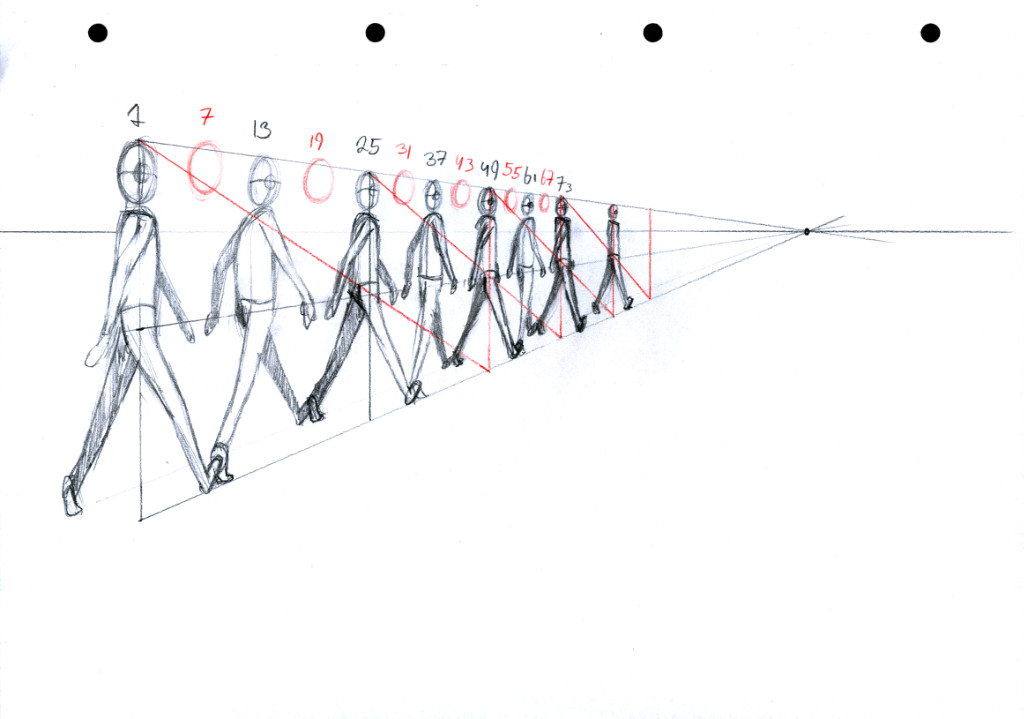 1 7 13 19 25 31 37 43 49 55 61 67 73